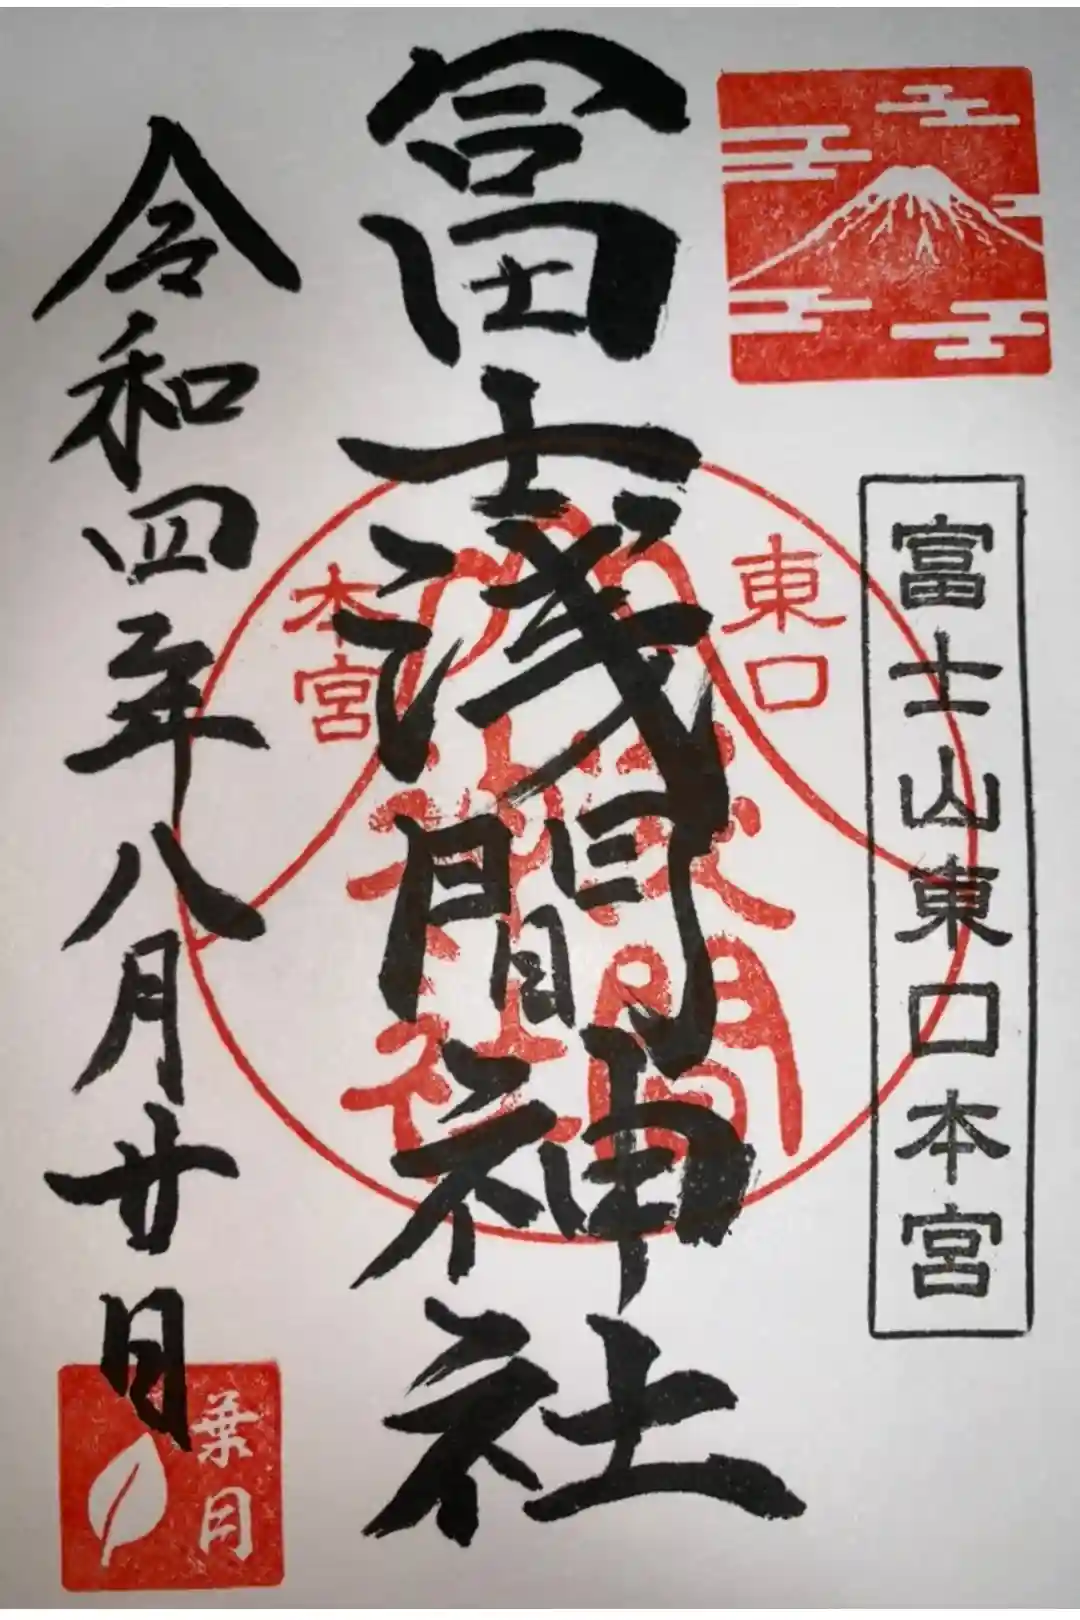 富士山東口本宮
東口
本宮
冨士浅間神社
浅間
神社
令和四年八月廿日
葉月